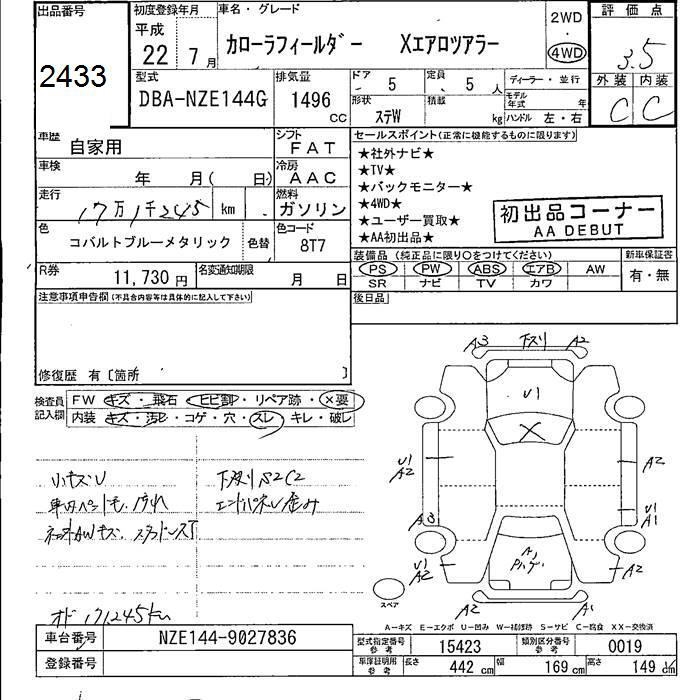 出品番号
2433
初度登録年月
平成
22年7月
車名・グレード
カローラフィールダー Xエアロツアラー
2WD
・
4WD
評価点
3.5
外装 内装
C C
型式
DBA-NZE144G
排気量
1496 CC
ドア 5
定員 5人
形状 ステW
積載 kg
ディーラー・並行
モデル年式 年
ハンドル 左・右
車歴 自家用
シフト FAT
車検 年 月( 日)
冷房 AAC
走行 17万1千245 km
燃料 ガソリン
色 コバルトブルーメタリック 色替
色コード 8T7
R券 11,730円
名変通知期限 月 日
セールスポイント(正常に機能するものに限ります)
★社外ナビ★
★TV★
★バックモニター★
★4WD★
★ユーザー買取★
★AA初出品★
初出品コーナー
AA DEBUT
装備品 (純正品に限り○をつけてください)
新車保証書
PS PW ABS エアB AW
SR ナビ TV カワ
有・無
後日品
注意事項申告欄(不具合内容等は具体的に記入して下さい)
修復歴 有〔箇所 〕
検査員記入欄
FW キズ・飛石・ヒビ割・リペア跡・×要
内装 キズ・汚レ・コゲ・穴・スレ・キレ・破レ
小キズU
下廻りS2C2
エンドパネル歪み
オド 171,245km
A3 下スリ A2
U1
X
U1
A2
A2
A3
U1
A1
U1
A2
A2
A2 A1
スペア
A-キズ E-エクボ U-凹み W-補修跡 S-サビ C-腐食 XX-交換済
車台番号 NZE144-9027836
登録番号
型式指定番号 参考 15423
類別区分番号 参考 0019
車庫証明用 参考 長さ 442cm 幅 169cm 高さ 149cm